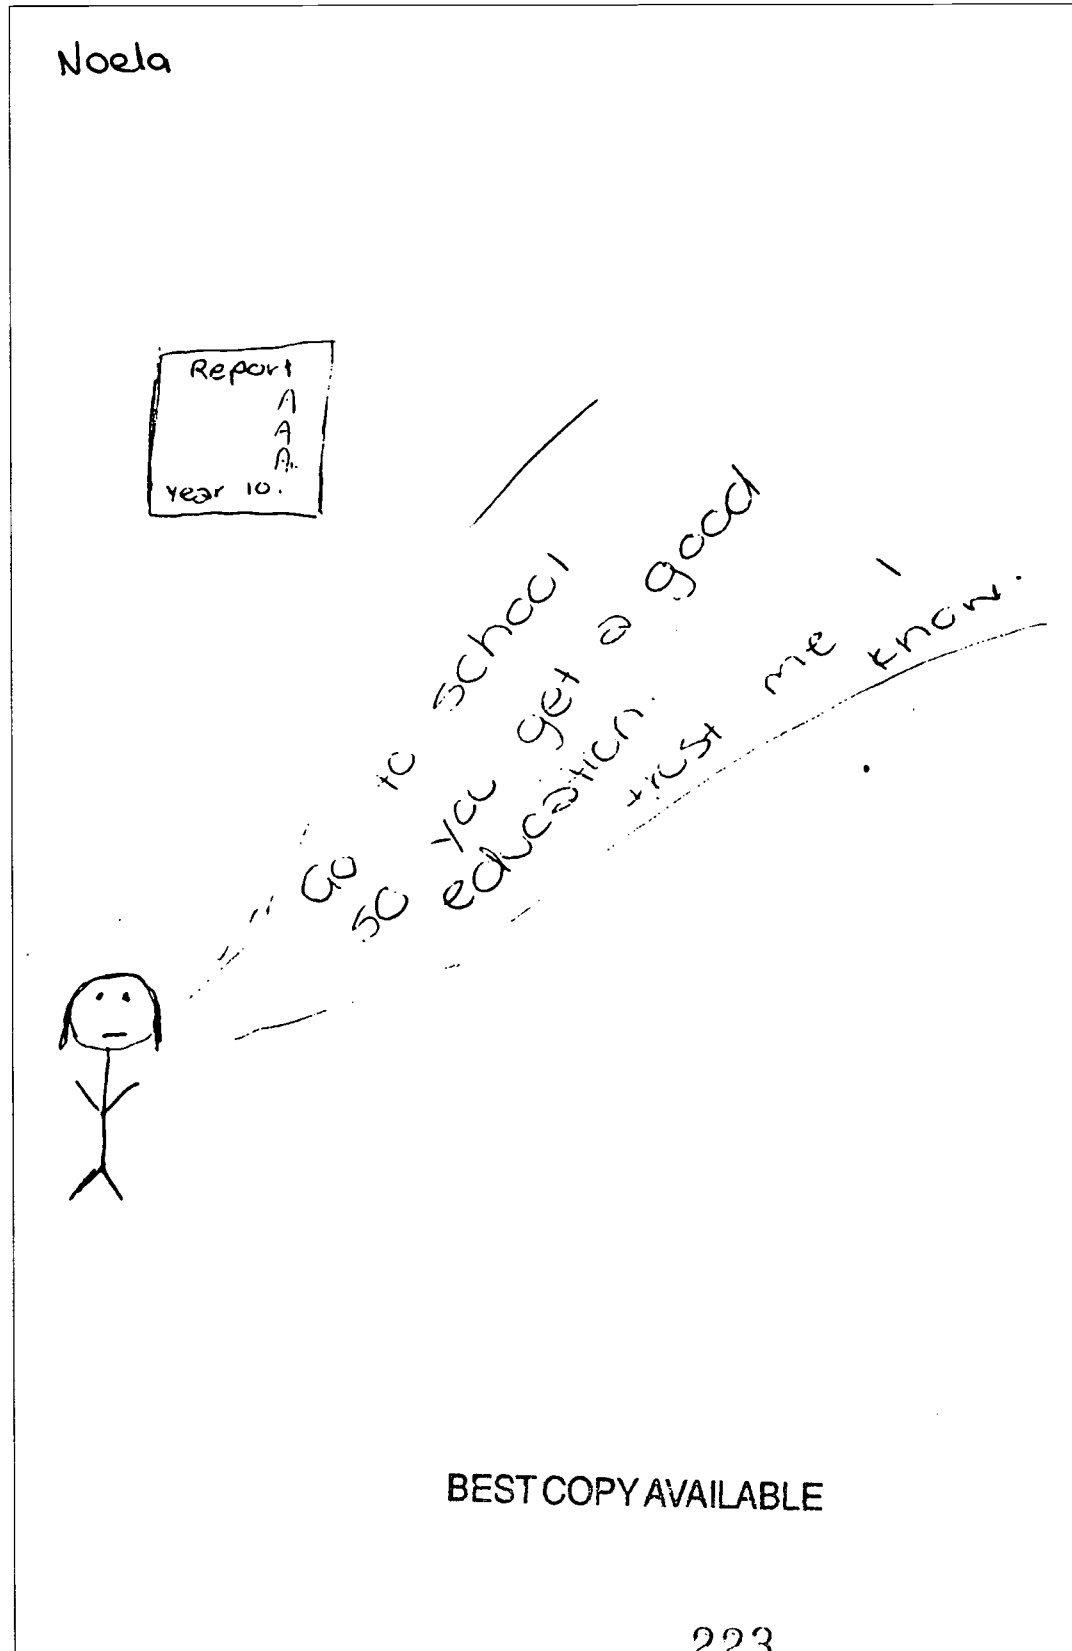 Noela
Report
A
A
A.
Year 10.
Go to school
so you get a good
education.
trust me I
know.
BEST COPY AVAILABLE
223